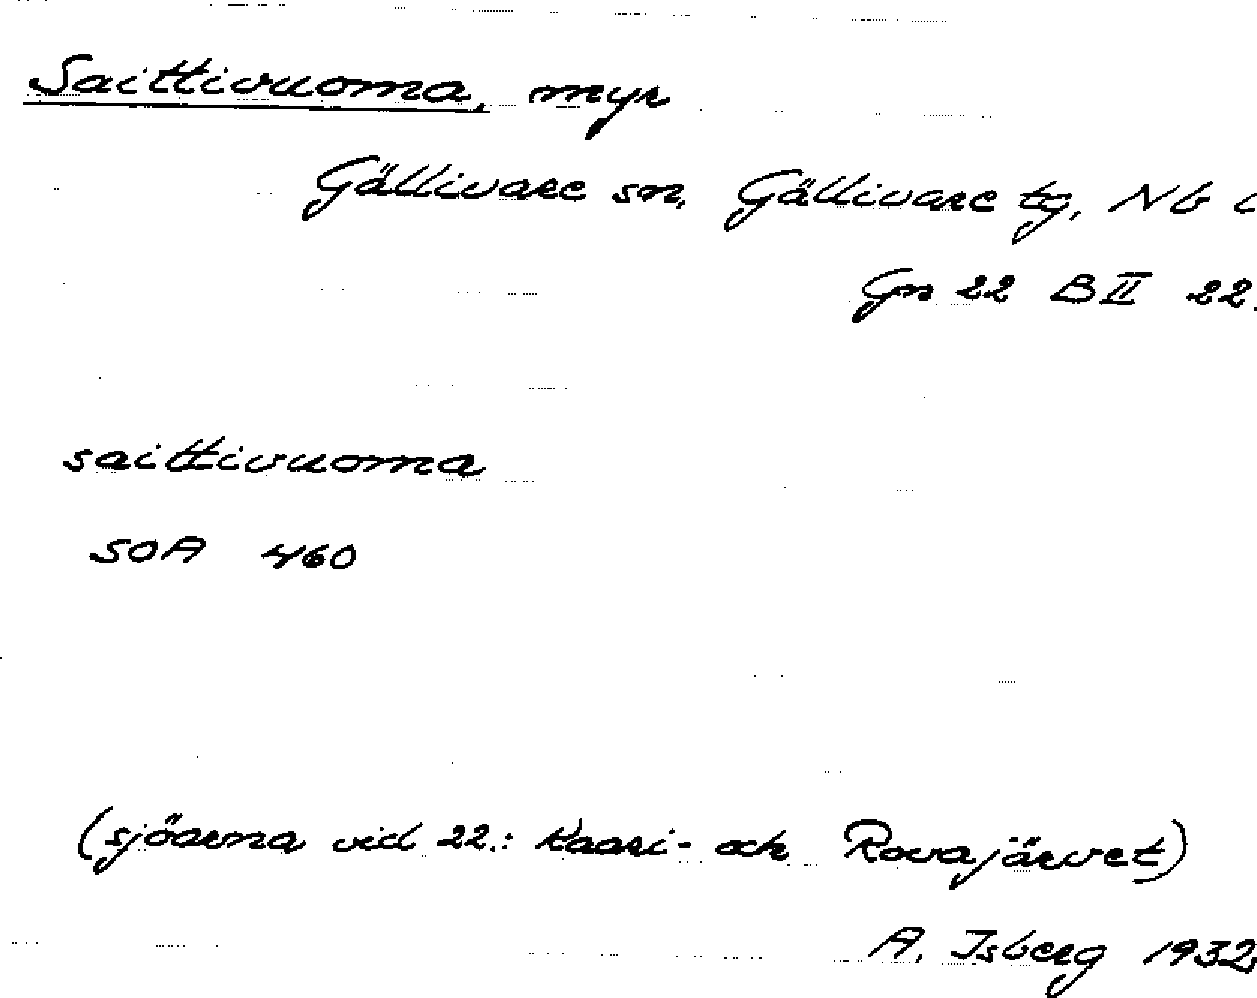 Saittivuoma, myr
Gällivare sn. Gällivare tg, Nb l
Gn 22 B II 22.
saittivuoma
SOA 460
(sjöarna vid 22.: Kaari- och Rovajärvet)
A. Isberg 1932.